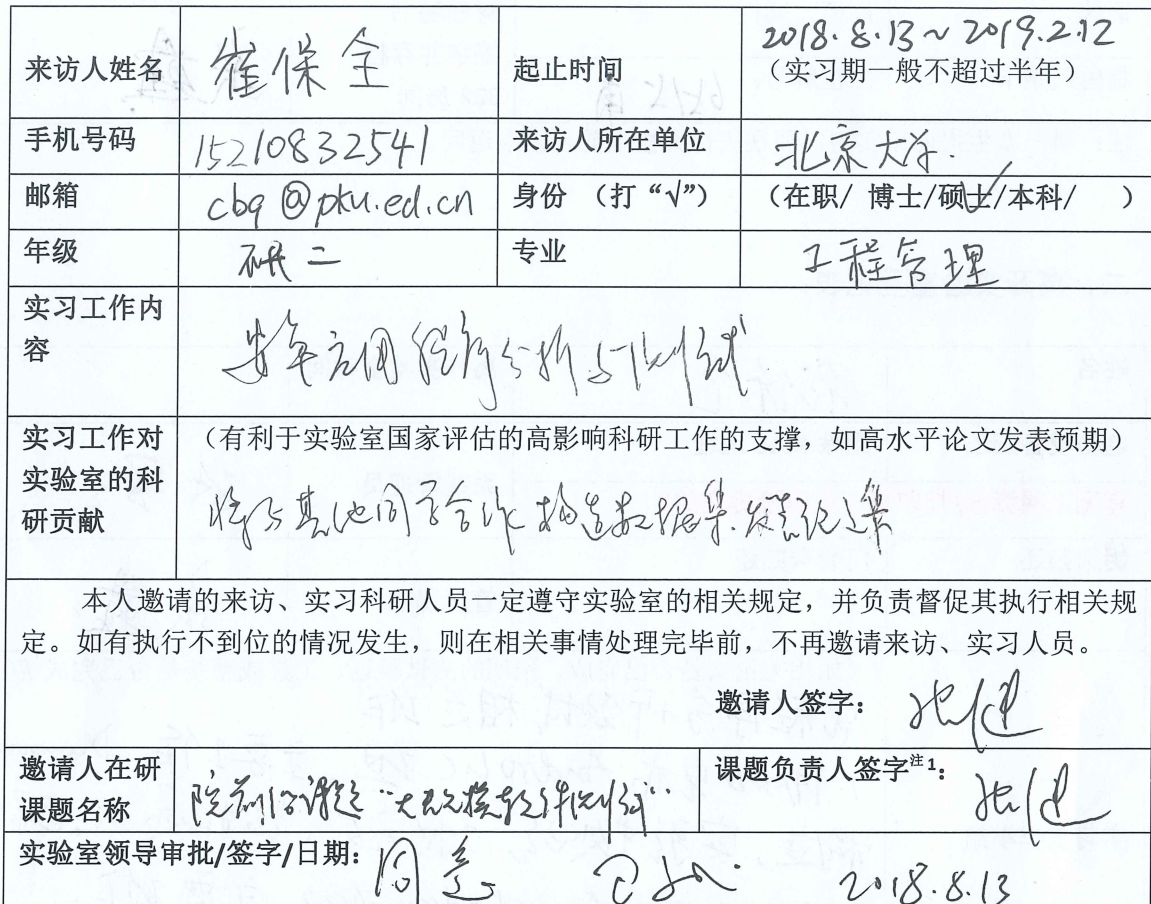 来访人姓名 崔保全 起止时间 2018.8.13~2019.2.12
(实习期一般不超过半年)
手机号码 15210832541 来访人所在单位 北京大学.
邮箱 cbq@pku.ed.cn 身份 (打“√”) (在职/ 博士/硕士/本科/ ) √
年级 研二 专业 工程管理
实习工作内
容
安卓应用程序分析与测试
实习工作对
实验室的科
研贡献
(有利于实验室国家评估的高影响科研工作的支撑,如高水平论文发表预期)
将与其他同学合作构造数据集,发表论文
本人邀请的来访、实习科研人员一定遵守实验室的相关规定,并负责督促其执行相关规
定。如有执行不到位的情况发生,则在相关事情处理完毕前,不再邀请来访、实习人员。
邀请人签字: 张健
邀请人在研
课题名称
院前沿课题“大规模软件测试”
课题负责人签字注1: 张健
实验室领导审批/签字/日期: 同意 2018.8.13